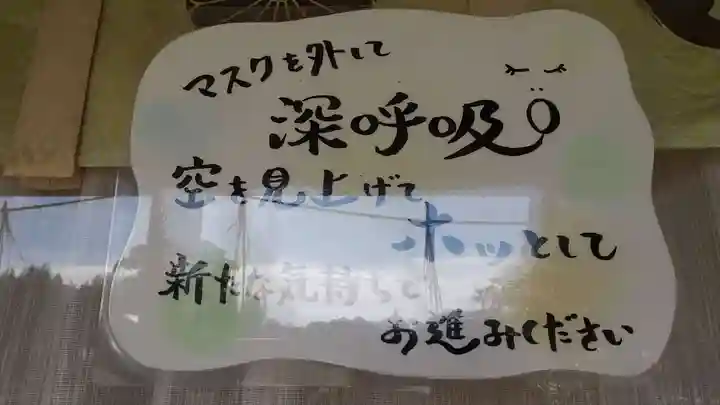 マスクを外して
深呼吸
空を見上げて
ホッとして
新たな気持ちで
お進みください